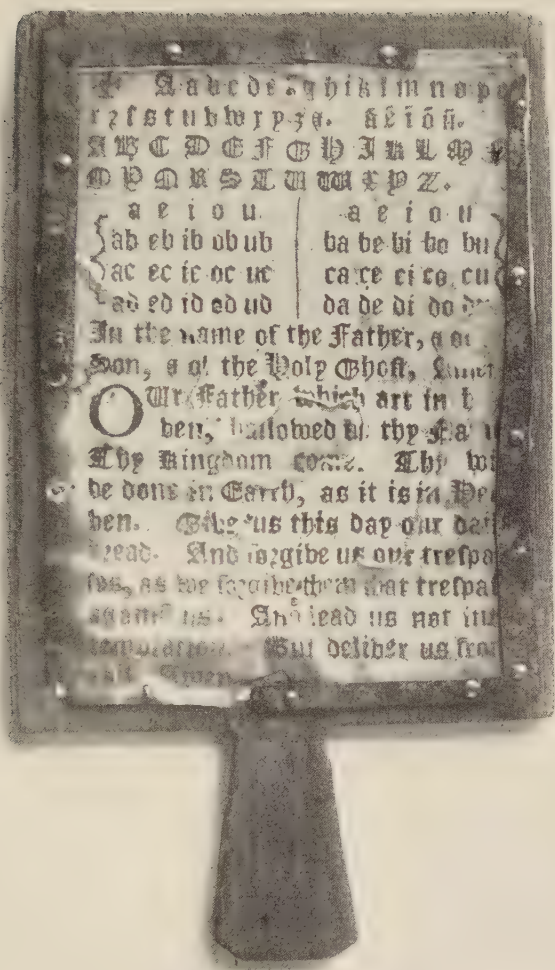 ✠ A a b c d e f g h i k l m n o p
r ꝛ s ſ t u b w x y z &. ã ẽ ĩ õ ũ.
A B C D E F G H I K L M
O P Q R S T U W X Y Z.
a e i o u | a e i o u
ab eb ib ob ub | ba be bi bo bu
ac ec ic oc uc | ca ce ci co cu
ad ed id od ud | da de di do
In the name of the Father, &
Son, & of the Holy Ghoſt,
OUr Father which art in
ven, hallowed thy
Thy Kingdom come. Thy
be done in Earth, as it is in
ven. Give us this day our
bread. And forgive us our treſpa
ſes, as we forgive them that treſpaſ
againſt us. And lead us not
temptation. But deliver us from
Amen